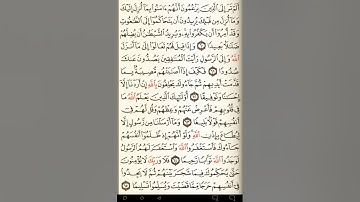 ألم تر إلى الذين يزعمون أنهم ءامنوا بما أنزل إليك
وما أنزل من قبلك يريدون أن يتحاكموا إلى الطغوت
وقد أمروا أن يكفروا به ويريد الشيطن أن يضلهم
ضللا بعيدا ٦٠ وإذا قيل لهم تعالوا إلى ما أنزل
الله وإلى الرسول رأيت المنفقين يصدون عنك
صدودا ٦١ فكيف إذا أصبتهم مصيبة بما
قدمت أيديهم ثم جاءوك يحلفون بالله إن أردنا إلا
إحسنا وتوفيقا ٦٢ أولئك الذين يعلم الله ما
في قلوبهم فأعرض عنهم وعظهم وقل لهم في
أنفسهم قولا بليغا ٦٣ وما أرسلنا من رسول إلا
ليطاع بإذن الله ولو أنهم إذ ظلموا أنفسهم
جاءوك فاستغفروا الله واستغفر لهم الرسول
لوجدوا الله توابا رحيما ٦٤ فلا وربك لا يؤمنون
حتى يحكموك فيما شجر بينهم ثم لا يجدوا
في أنفسهم حرجا مما قضيت ويسلموا تسليما ٦٥